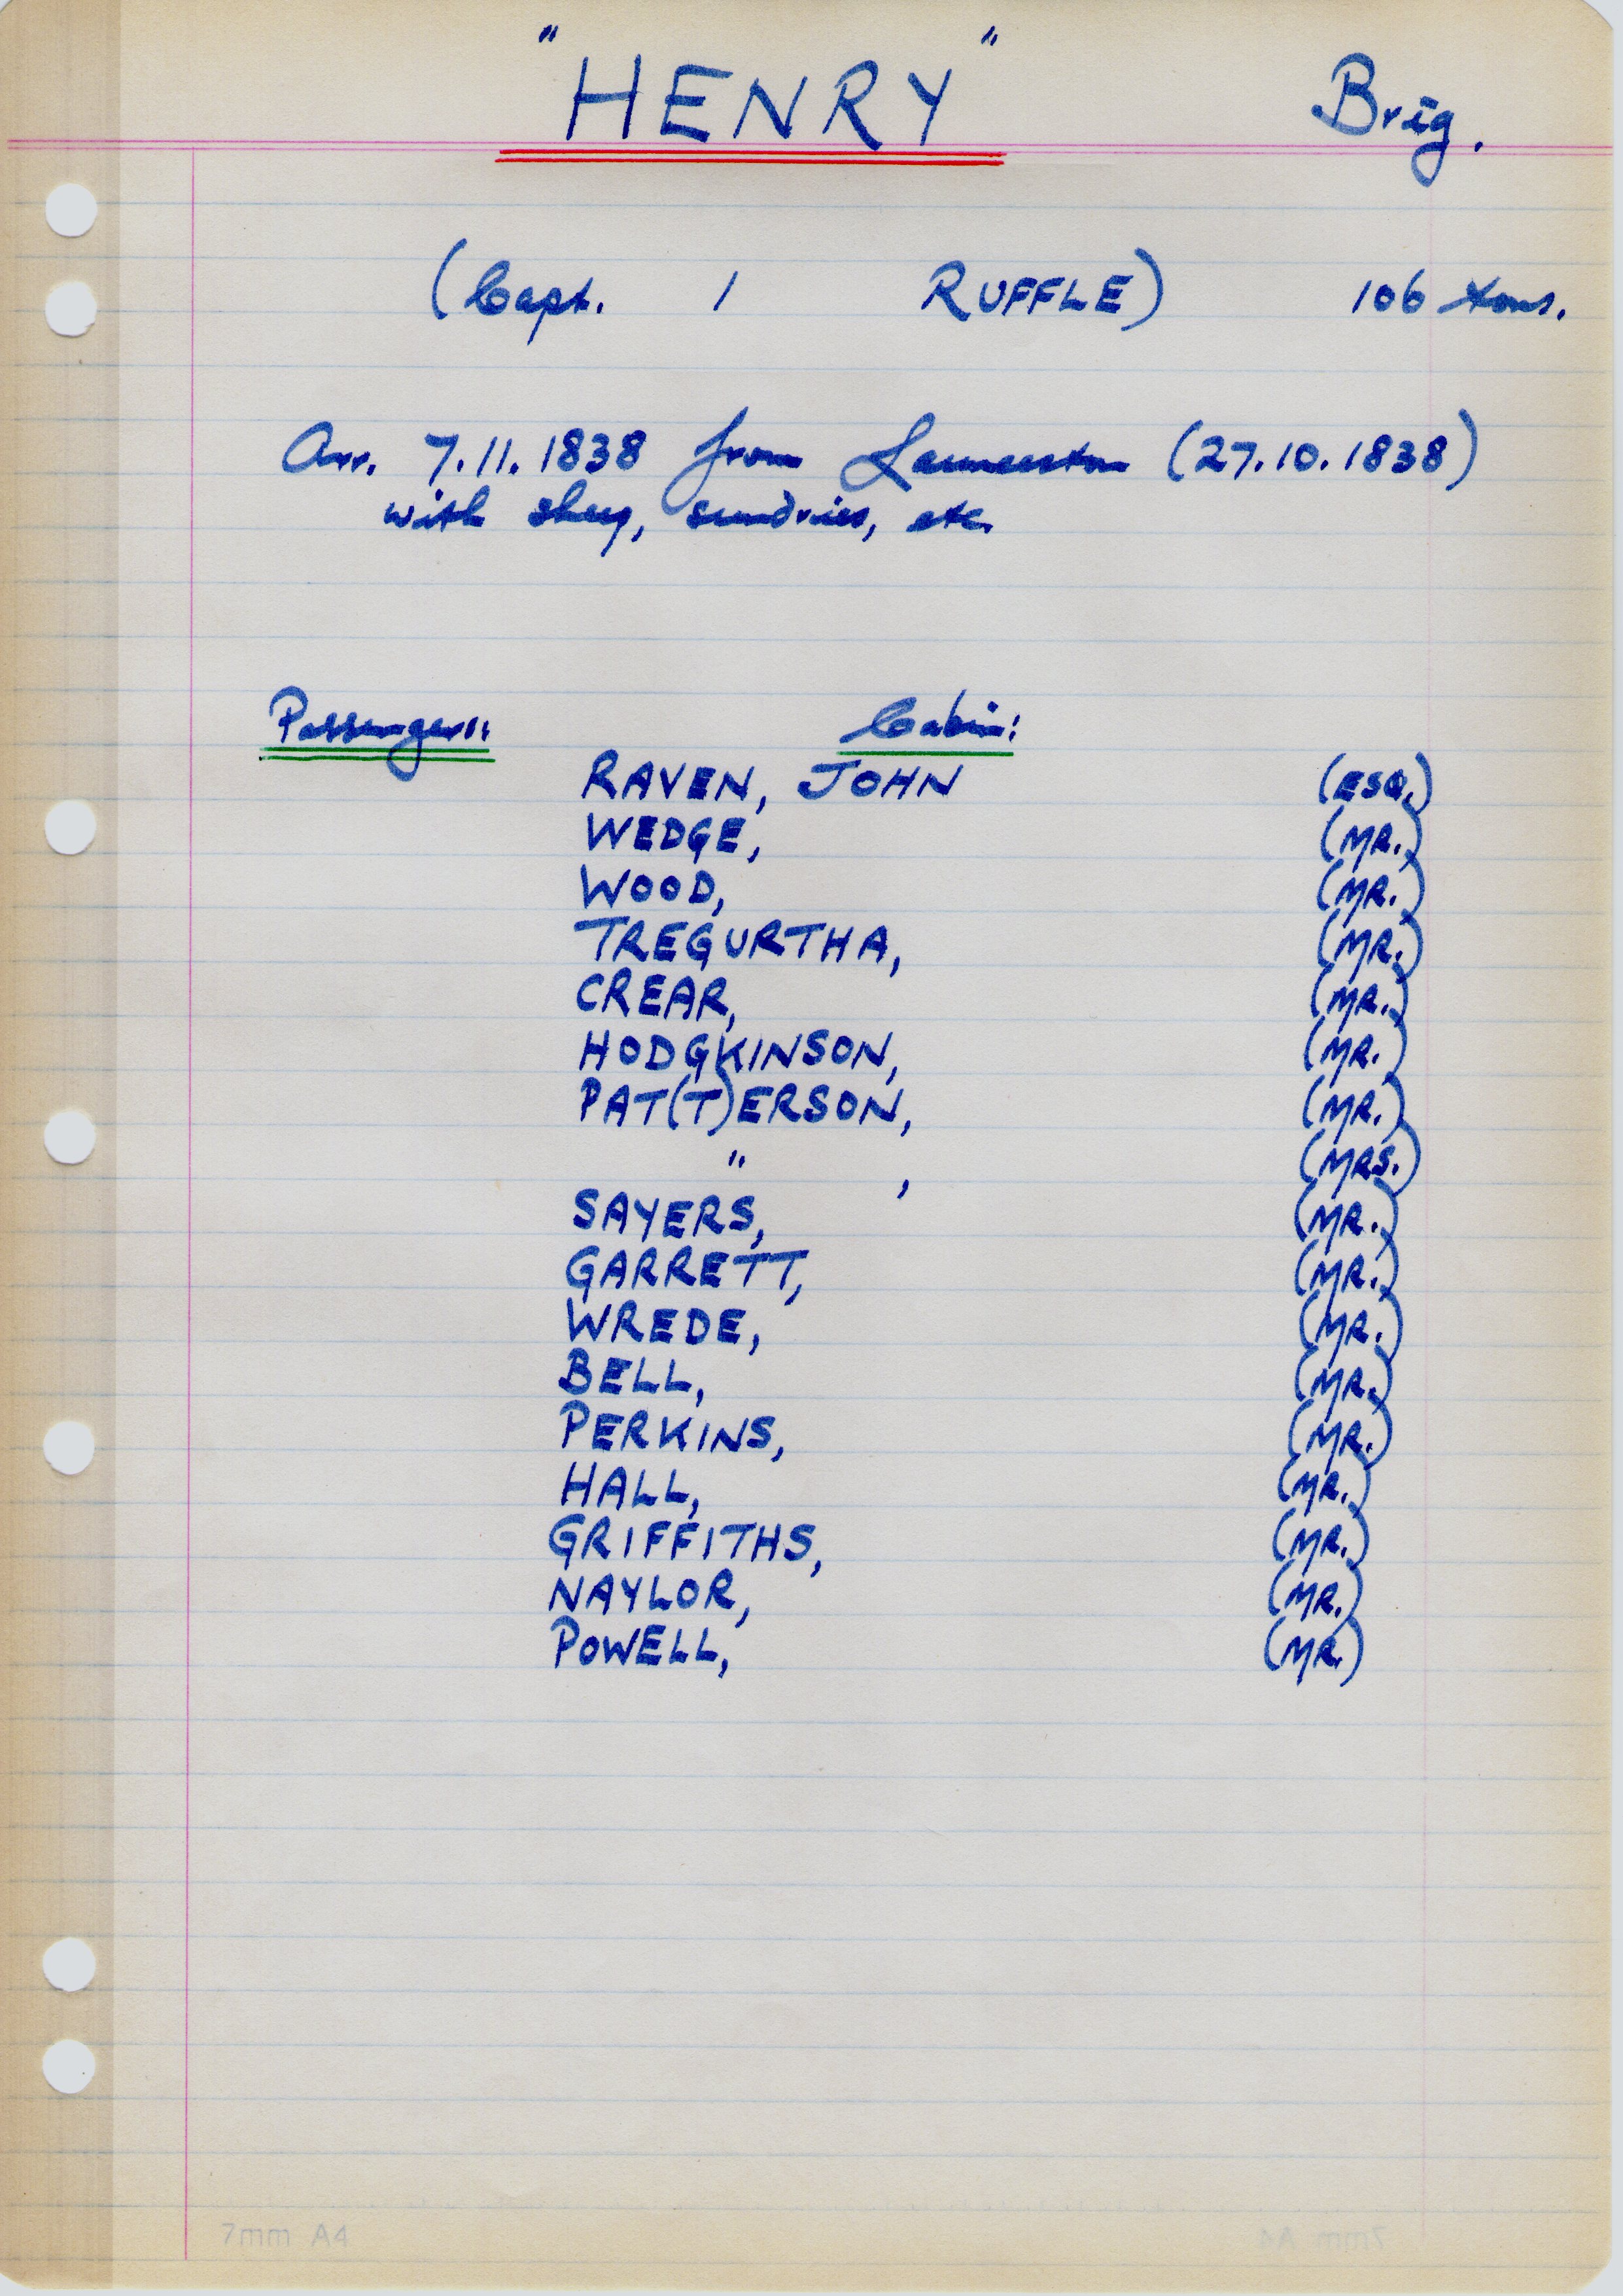 "HENRY" Brig.
(Capt. / RUFFLE) 106 tons.
Arr. 7.11.1838 from Launceston (27.10.1838)
with sheep, sundries, etc.
Passengers: Cabin:
RAVEN, JOHN (ESQ.)
WEDGE, (MR.)
WOOD, (MR.)
TREGURTHA, (MR.)
CREAR, (MR.)
HODGKINSON, (MR.)
PAT(T)ERSON, (MR.)
" , (MRS.)
SAYERS, (MR.)
GARRETT, (MR.)
WREDE, (MR.)
BELL, (MR.)
PERKINS, (MR.)
HALL, (MR.)
GRIFFITHS, (MR.)
NAYLOR, (MR.)
POWELL, (MR.)
7mm A4